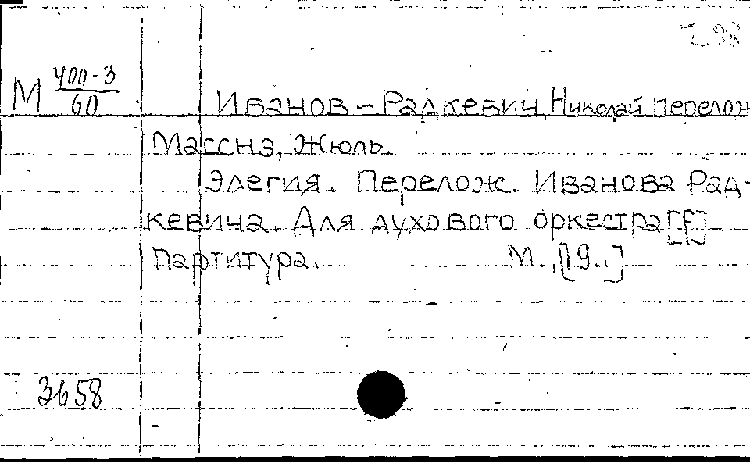 М 400-3/60
Иванов-Радкевич, Николай перелож
Масснэ, Жюль.
Элегия. Перелож. Иванова Рад-
кевича. Для духового оркестра [f]
Партитура. М., [19..]
3658